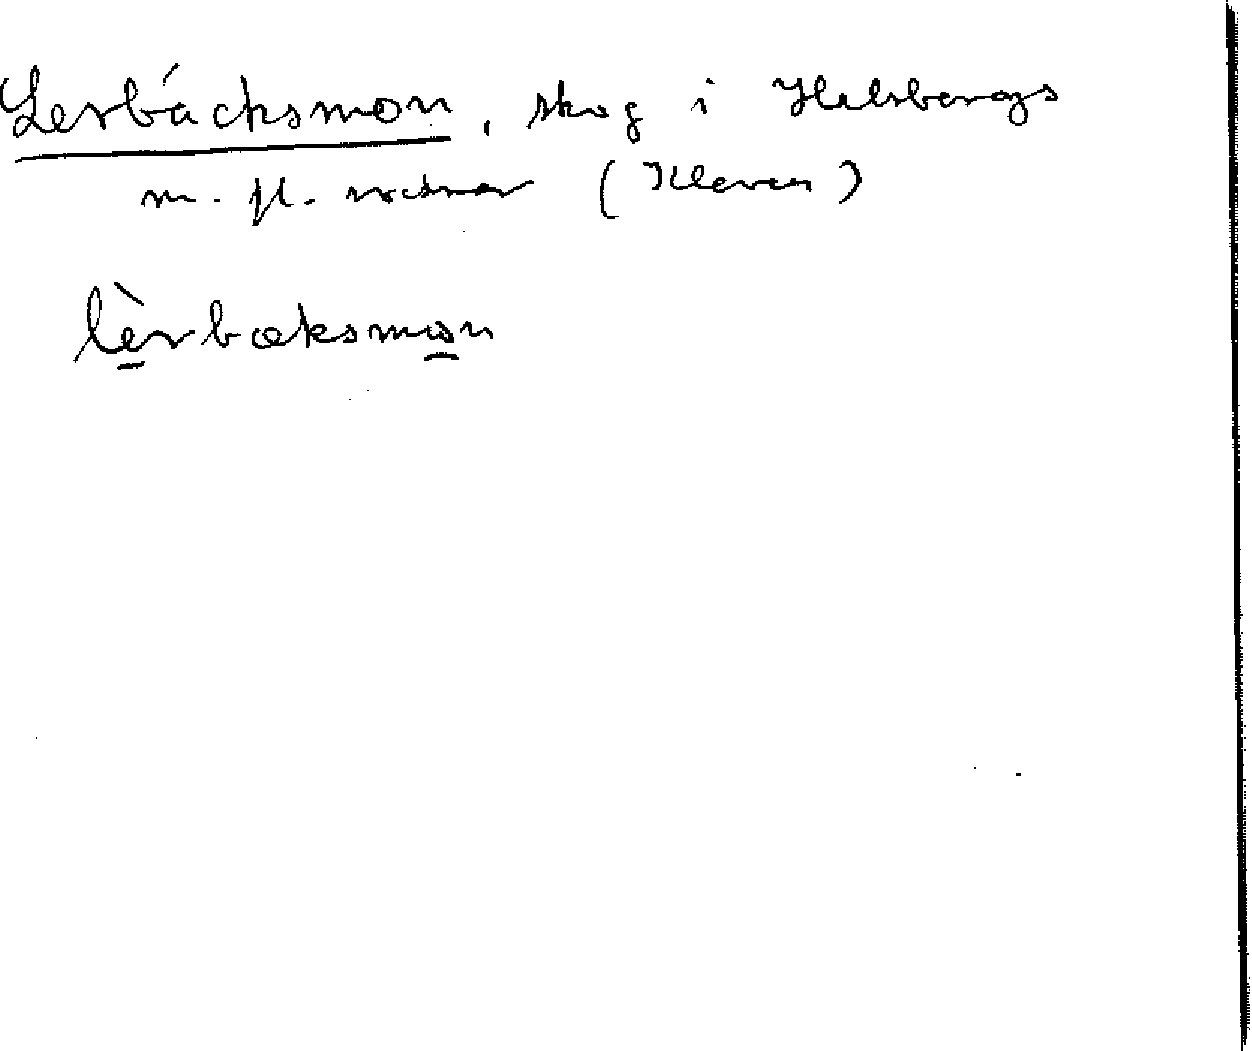 Lerbäcksmon, skog i Helsbergs
m. fl. rotar (Kleven)
lèrbæksmon